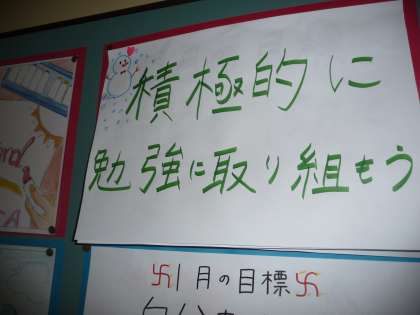 積極的に
勉強に取り組もう
卐1月の目標卐